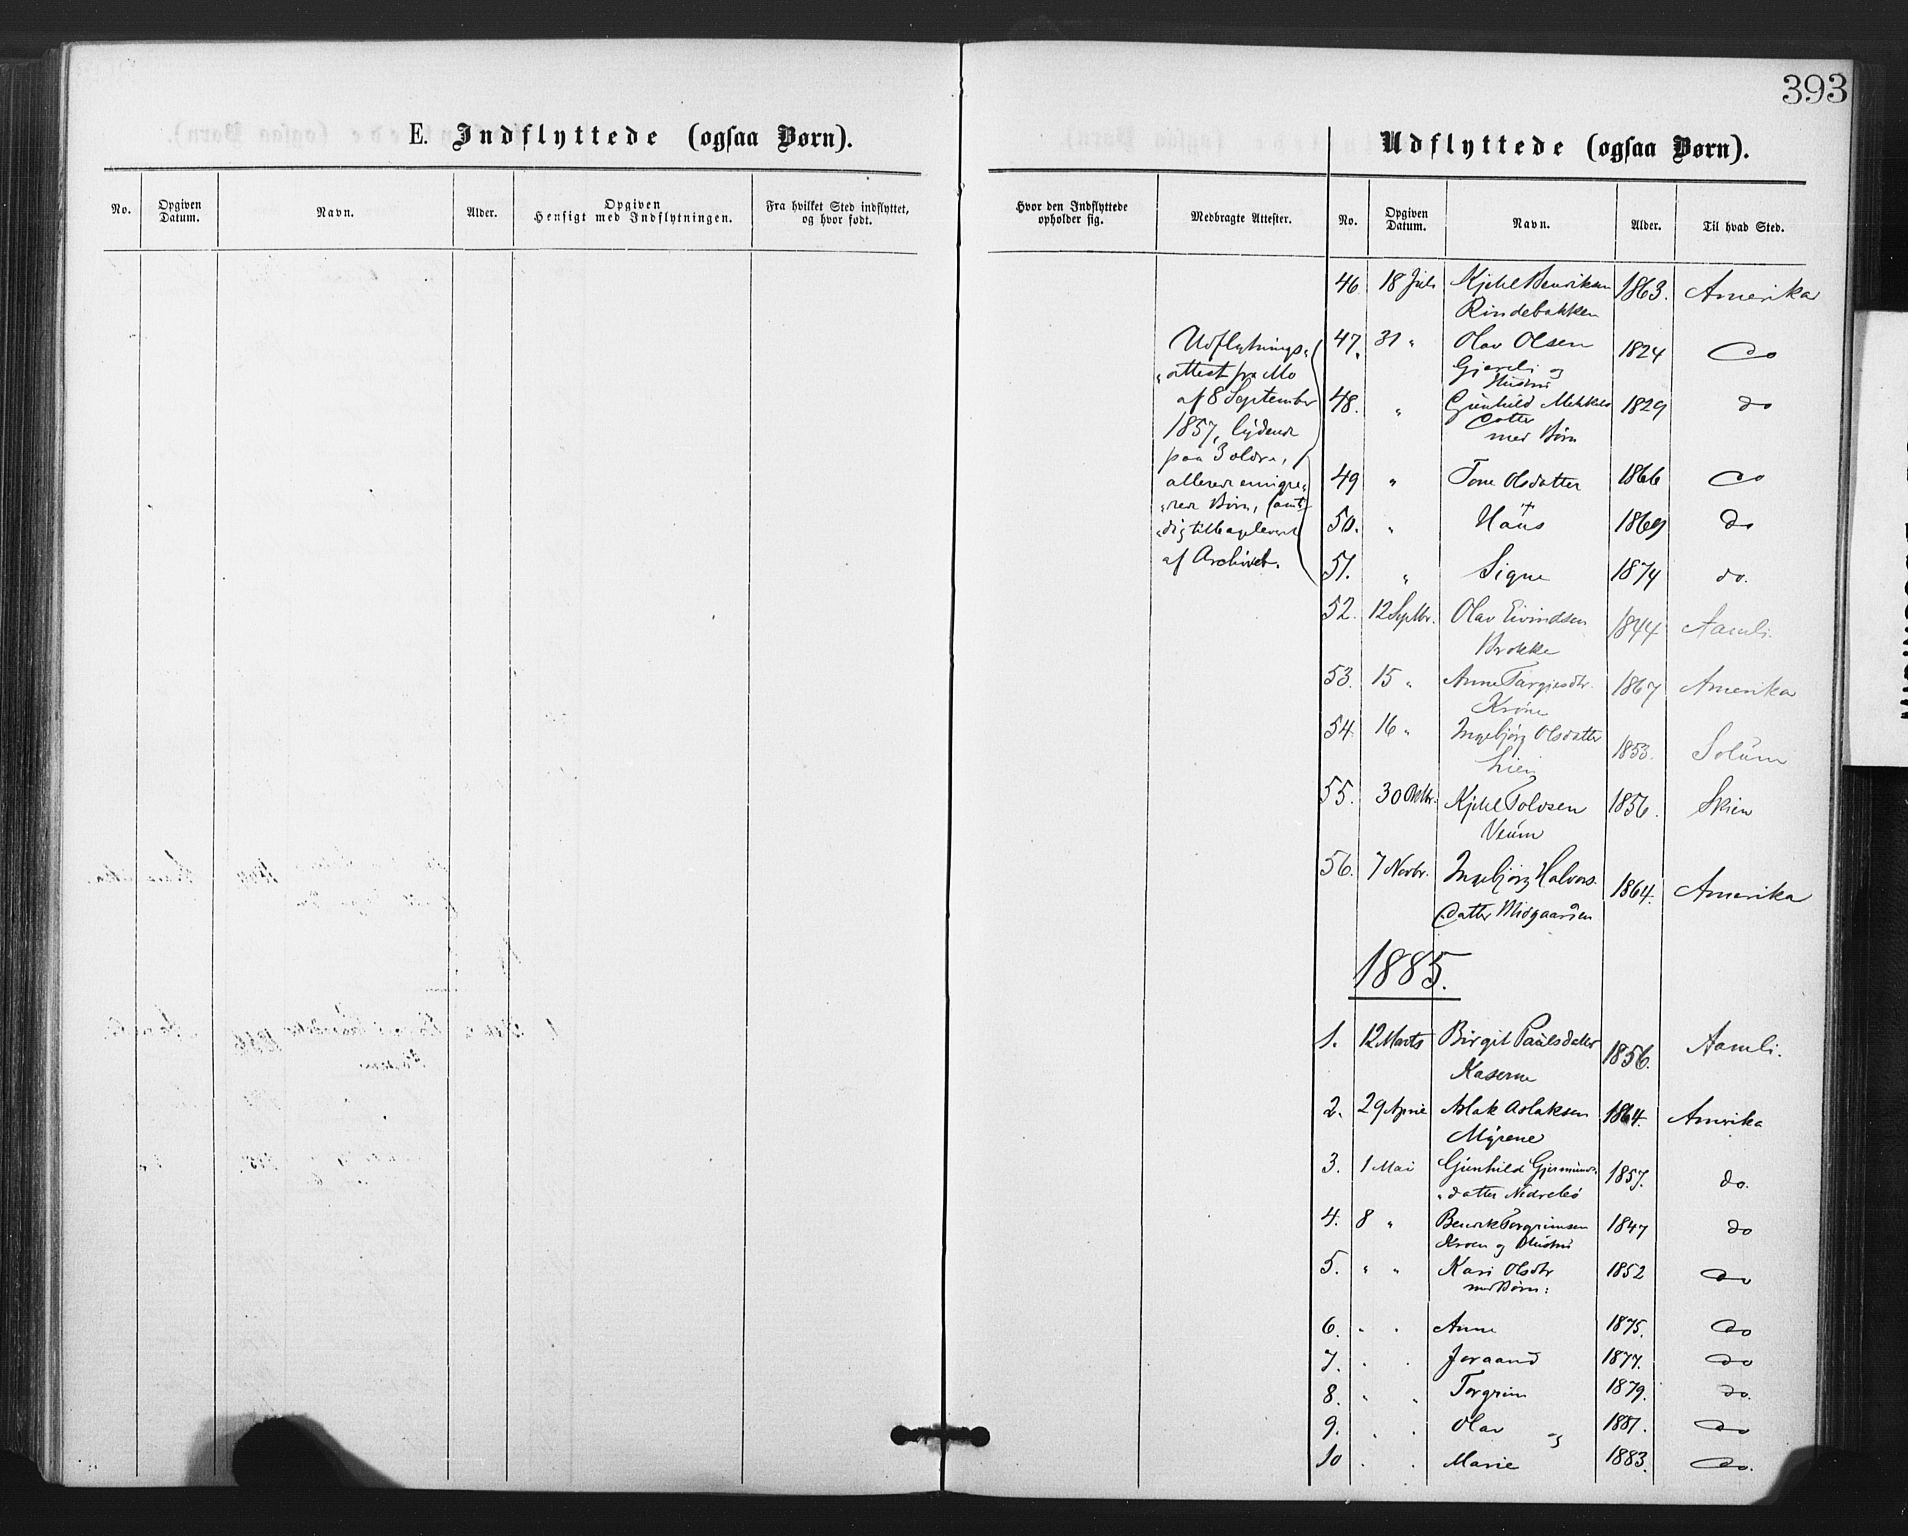 393
E. Indflyttede (ogsaa Børn).
No.
Opgiven Datum.
Navn.
Alder.
Opgiven Hensigt med Indflytningen.
Fra hvilket Sted indflyttet, og hvor født.
Hvor den Indflyttede opholder sig.
Medbragte Attester.
Udflyttede (ogsaa Børn).
No.
Opgiven Datum.
Navn.
Alder.
Til hvad Sted.
Udflytnings-
attest fra Mo
af 8 September
1857, lydende
paa 3 ældre,
allerede emigre-
rede Børn, samt
dig tilbageleveret
af Archivet.
46 18 Juli Kjetil Henriksen 1863. Amerika
Rindebakken
47. 31 " Olav Olsen 1824 do
og
Hustru
48. " Gunhild Mikkels 1829 do
datter
med Børn
49 " Tone Olsdatter 1866 do
50. " Hans 1869 do
51. " Signe 1874 do.
52. 12 Septbr. Olav Eivindsen 1844 Aamli.
Brokke
53. 15 " Anne Targjesdtr. 1867 Amerika
Krone
54. 16 " Ingebjørg Olsdatter 1853. Solum
Lien
55. 30 Oktbr. Kjetil Tolvsen 1856. Skien
Veum
56. 7 Novbr. Ingebjørg Halvors- 1864. Amerika
datter Midgaarden
1885.
1. 12 Marts Birgit Paulsdatter 1856. Aamli.
Kaserne
2. 29 April Aslak Aslaksen 1864. Amerika
Myrene
3. 1 Mai Gunhild Gjermunds- 1857. do.
datter Nedrebø
4. 8 " Henrik Torgrimsen 1847 do
Kroen og Hustru
5. " " Kari Olsdtr 1852 do
med Børn:
6. " " Anne 1875. do
7. " " Joraand 1877. do
8. " " Torgrim 1879. do.
9. " " Olav og 1881. do
10 " " Marie 1883. do.